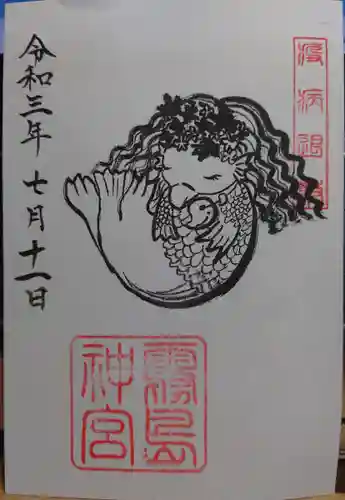 疫病退散
令和三年七月十一日
霧島
神宮